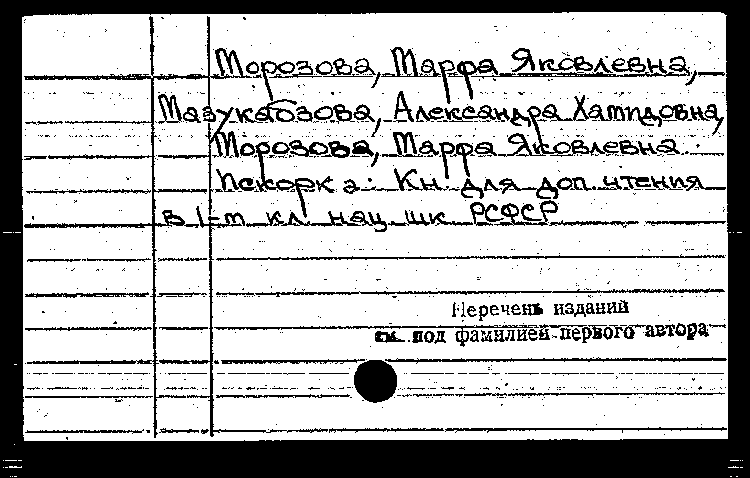 Морозова, Марфа Яковлевна,
Мазукабзова, Александра Хамидовна,
Морозова, Марфа Яковлевна.
Искорка: Кн. для доп. чтения
в 1-м кл. нац. шк. РСФСР
Перечень изданий
см. под фамилией первого автора